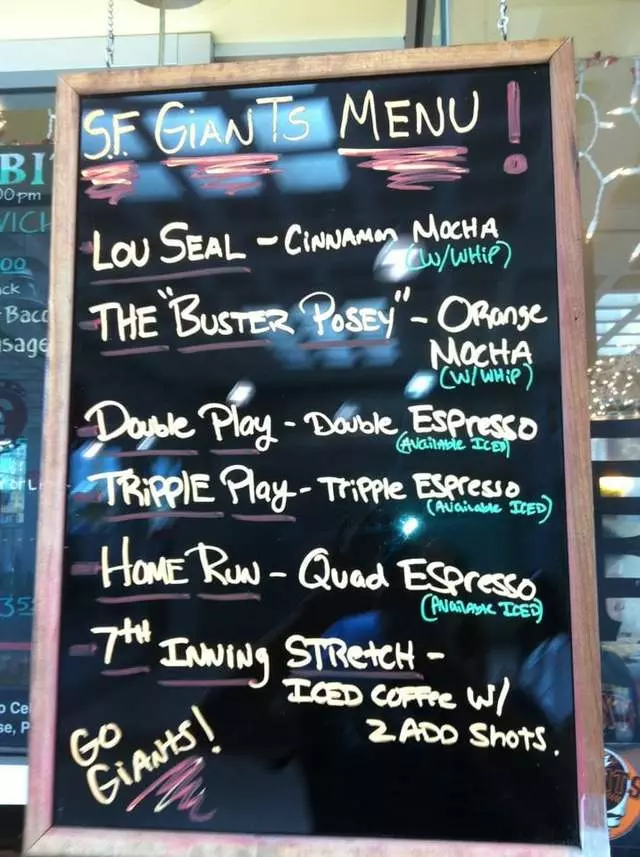 S.F. GIANTS MENU!
LOU SEAL - CINNAMON MOCHA
(W/WHIP)
THE "BUSTER POSEY" - ORANGE
MOCHA
(W/WHIP)
Double Play - Double Espresso
(Available ICED)
TRIPPLE Play - Tripple Espresso
(Available ICED)
HOME RUN - Quad Espresso
(Available ICED)
7TH INNING STRETCH -
ICED COFFEE W/
2 ADD SHOTS.
GO
GIANTS!